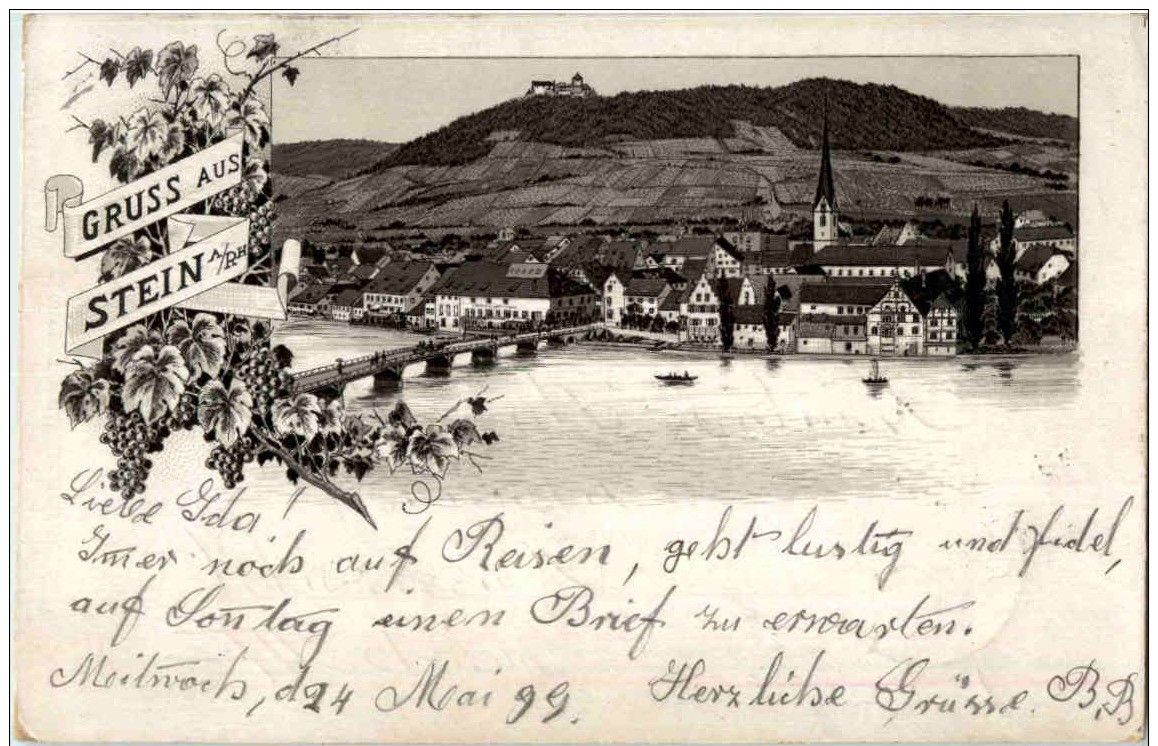 GRUSS AUS
STEIN A/RH
Liebe Ida!
Im̅er noch auf Reisen, geht lustig und fidel,
auf Son̅tag einen Brief zu erwarten.
Mitwoch, d 24 Mai 99. Herzliche Grüsse. B. B.